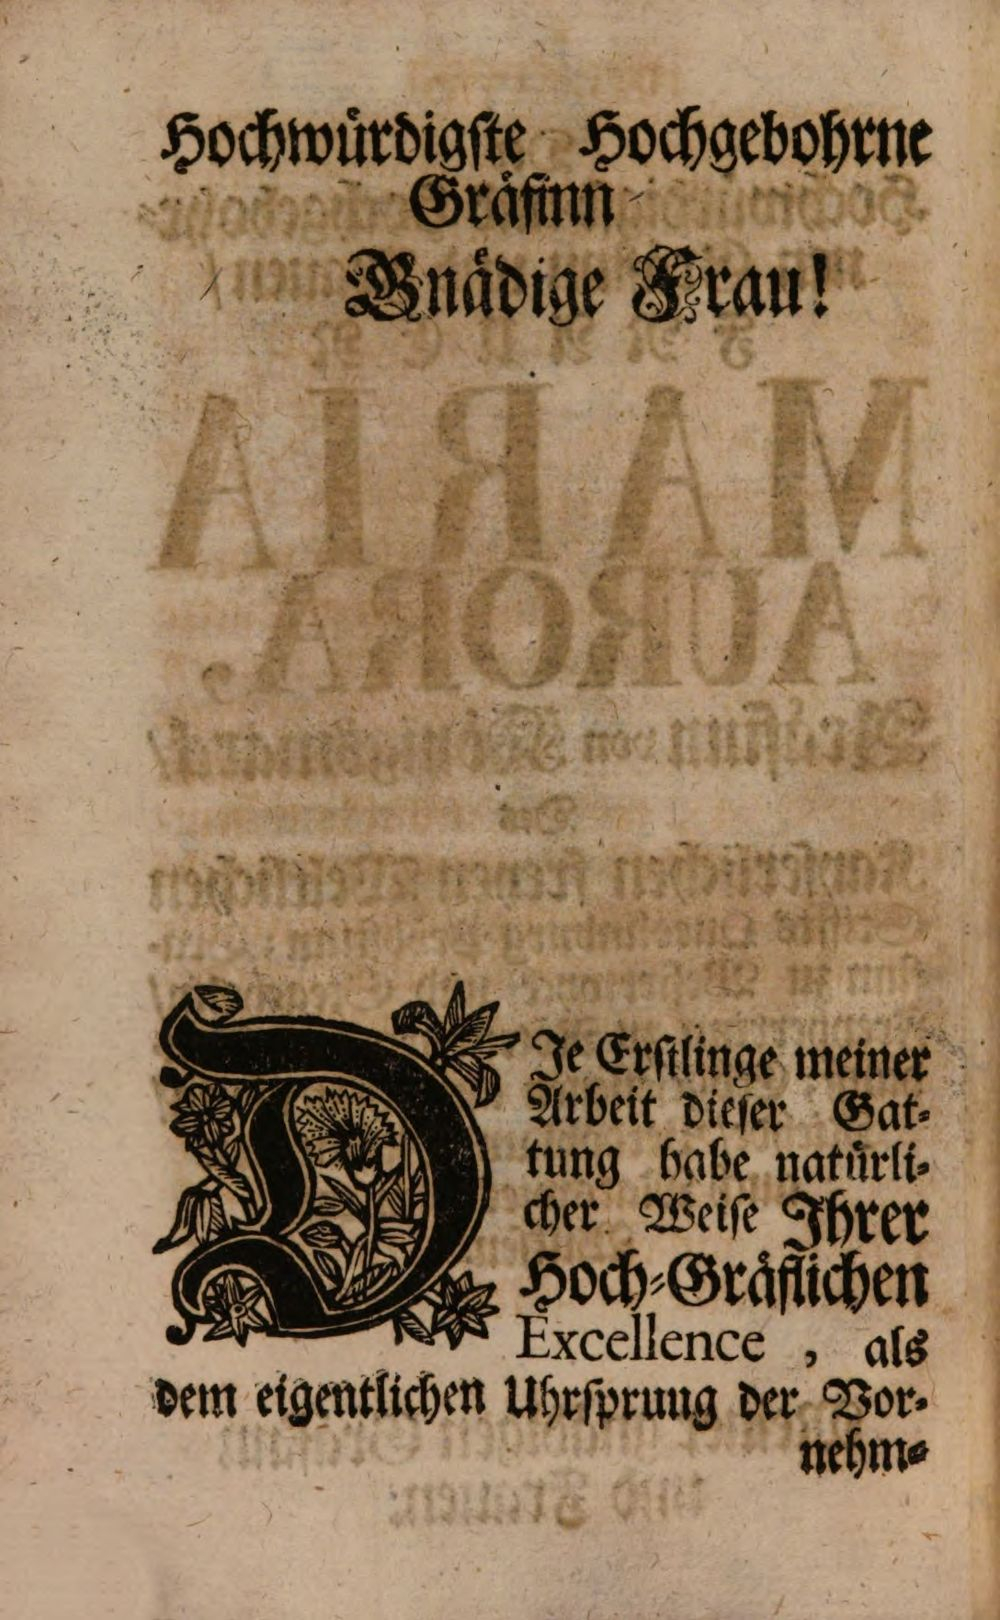 Hochwürdigste Hochgebohrne
Gräfinn
Gnädige Frau!
DJe Erstlinge meiner
Arbeit dieser Gat-
tung habe natürli-
cher Weise Jhrer
Hoch-Gräflichen
Excellence, als
dem eigentlichen Uhrsprung der Vor-
nehm-